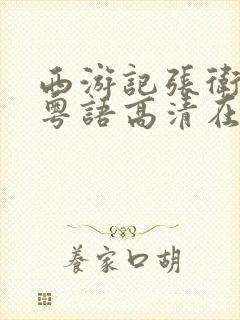 西游記張衛
粵語高清在
養家口胡